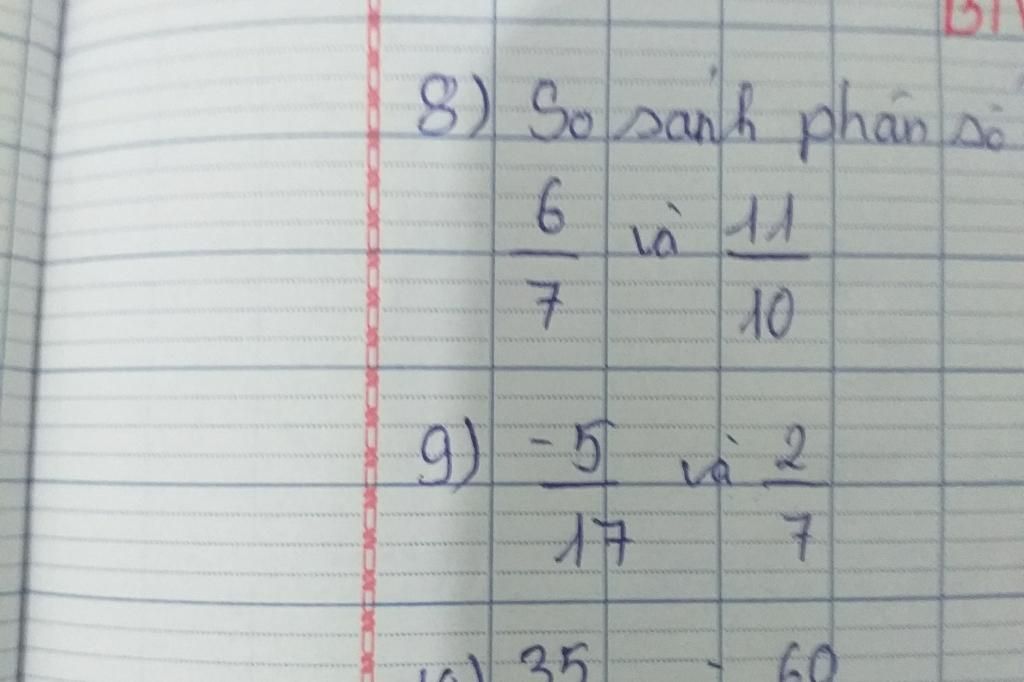 8) So sánh phân số
6/7 và 11/10
9) -5/17 và 2/7
35 60